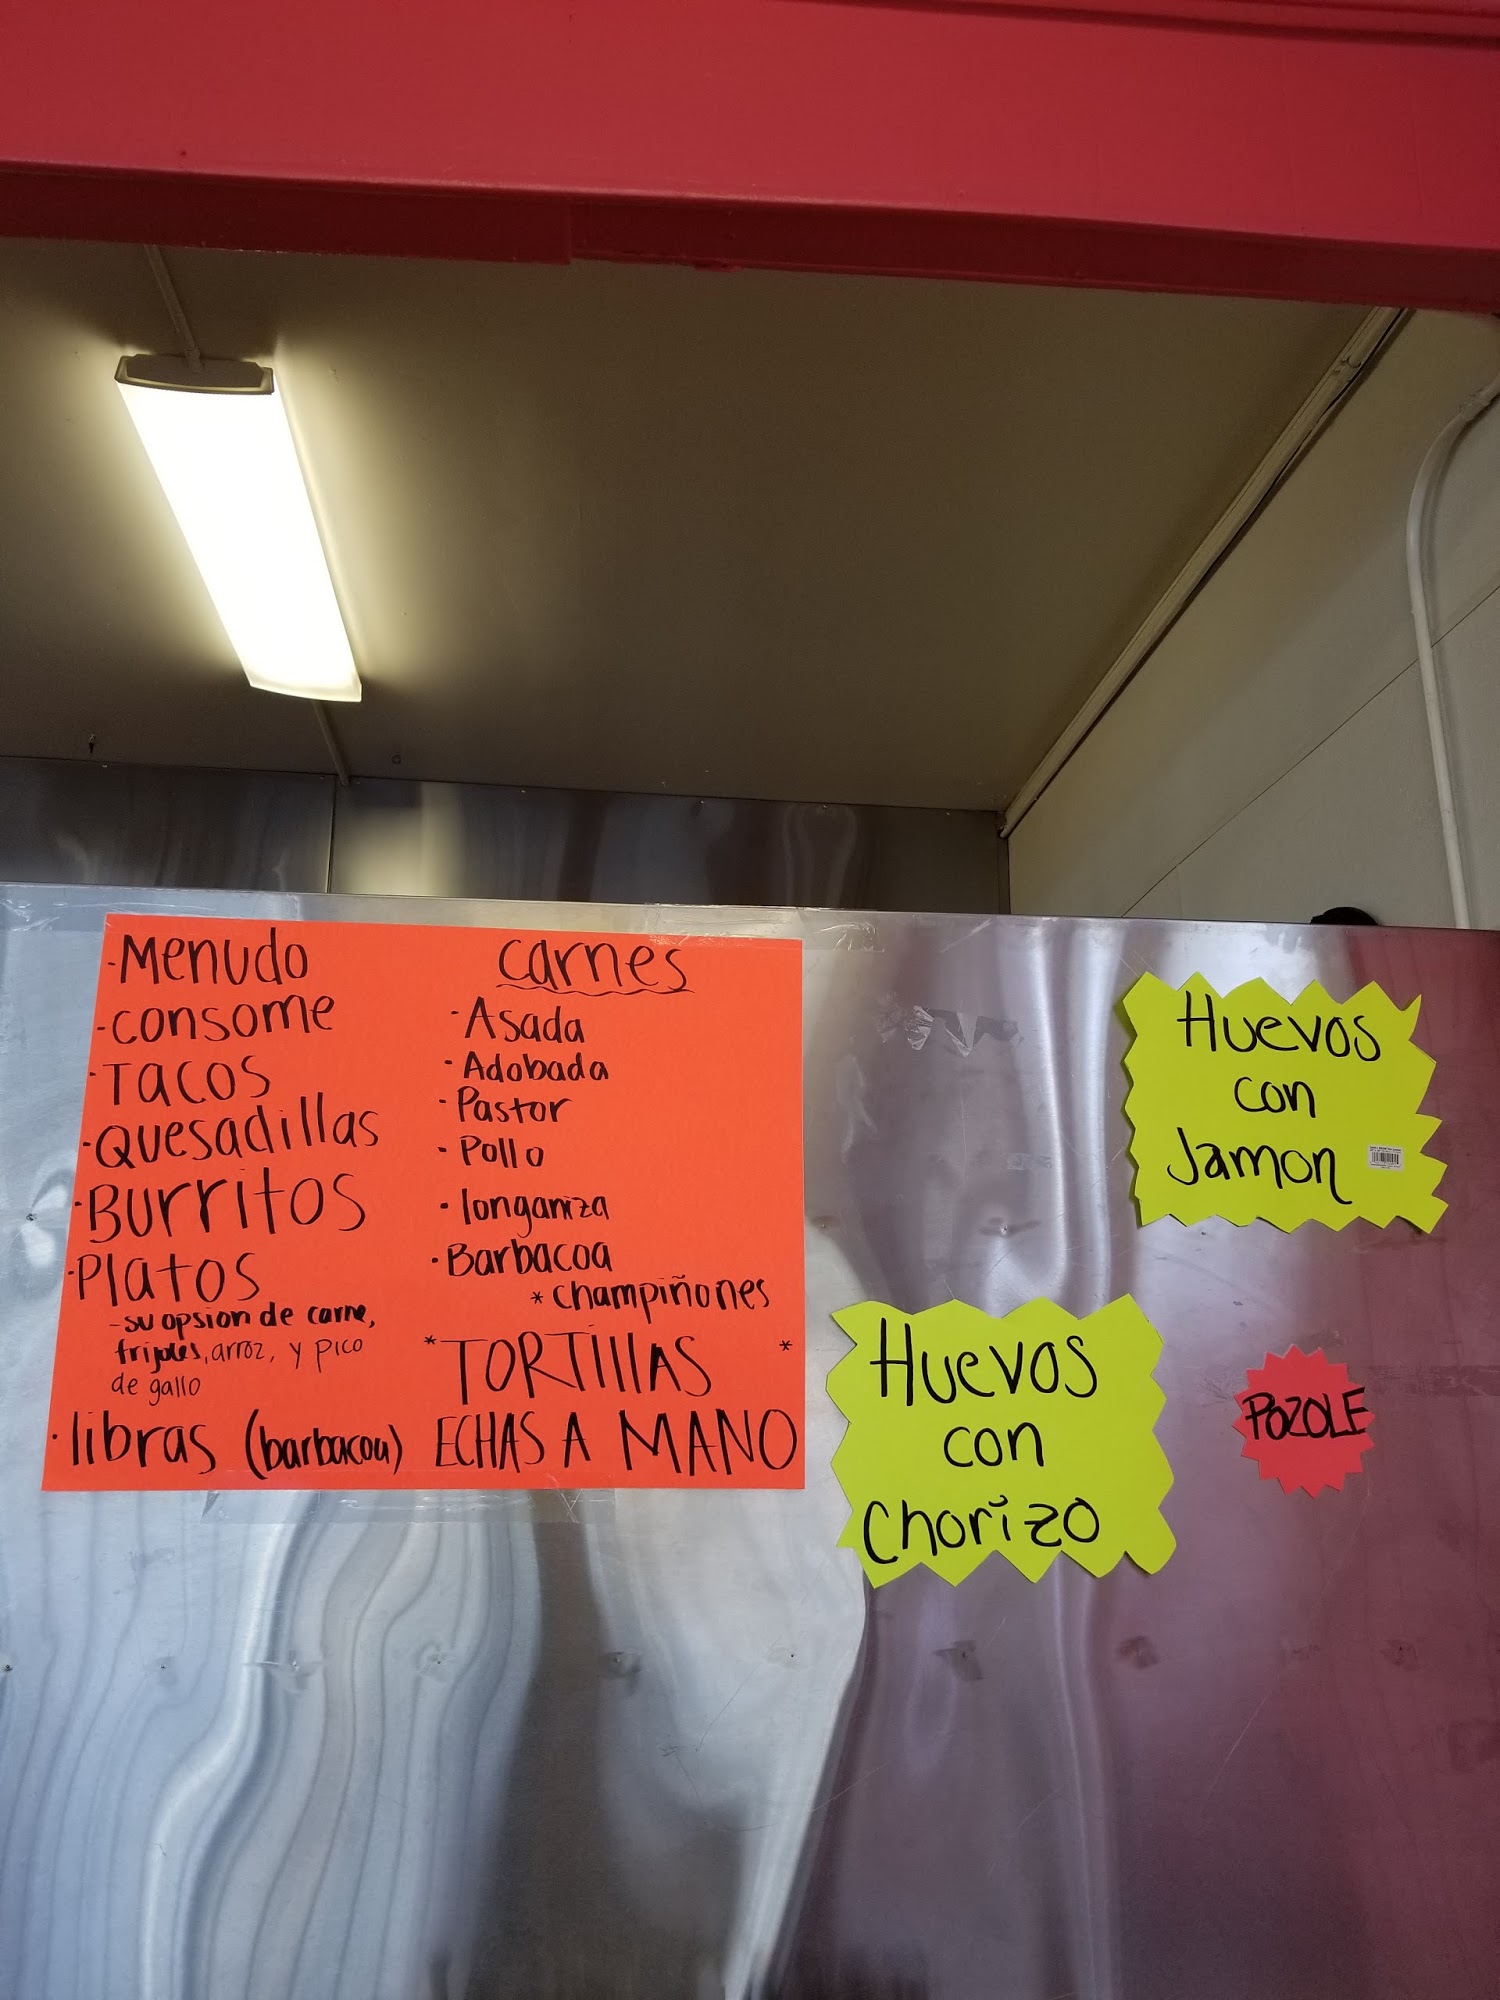 ·Menudo
·consome
·Tacos
·Quesadillas
·Burritos
·Platos
-su opsion de carne,
frijoles, arroz, y pico
de gallo
·libras (barbacoa)
carnes
·Asada
·Adobada
·Pastor
·Pollo
·longaniza
·Barbacoa
*champiñones
*TORTILLAS *
ECHAS A MANO
Huevos
con
Jamon
Huevos
con
Chorizo
POZOLE